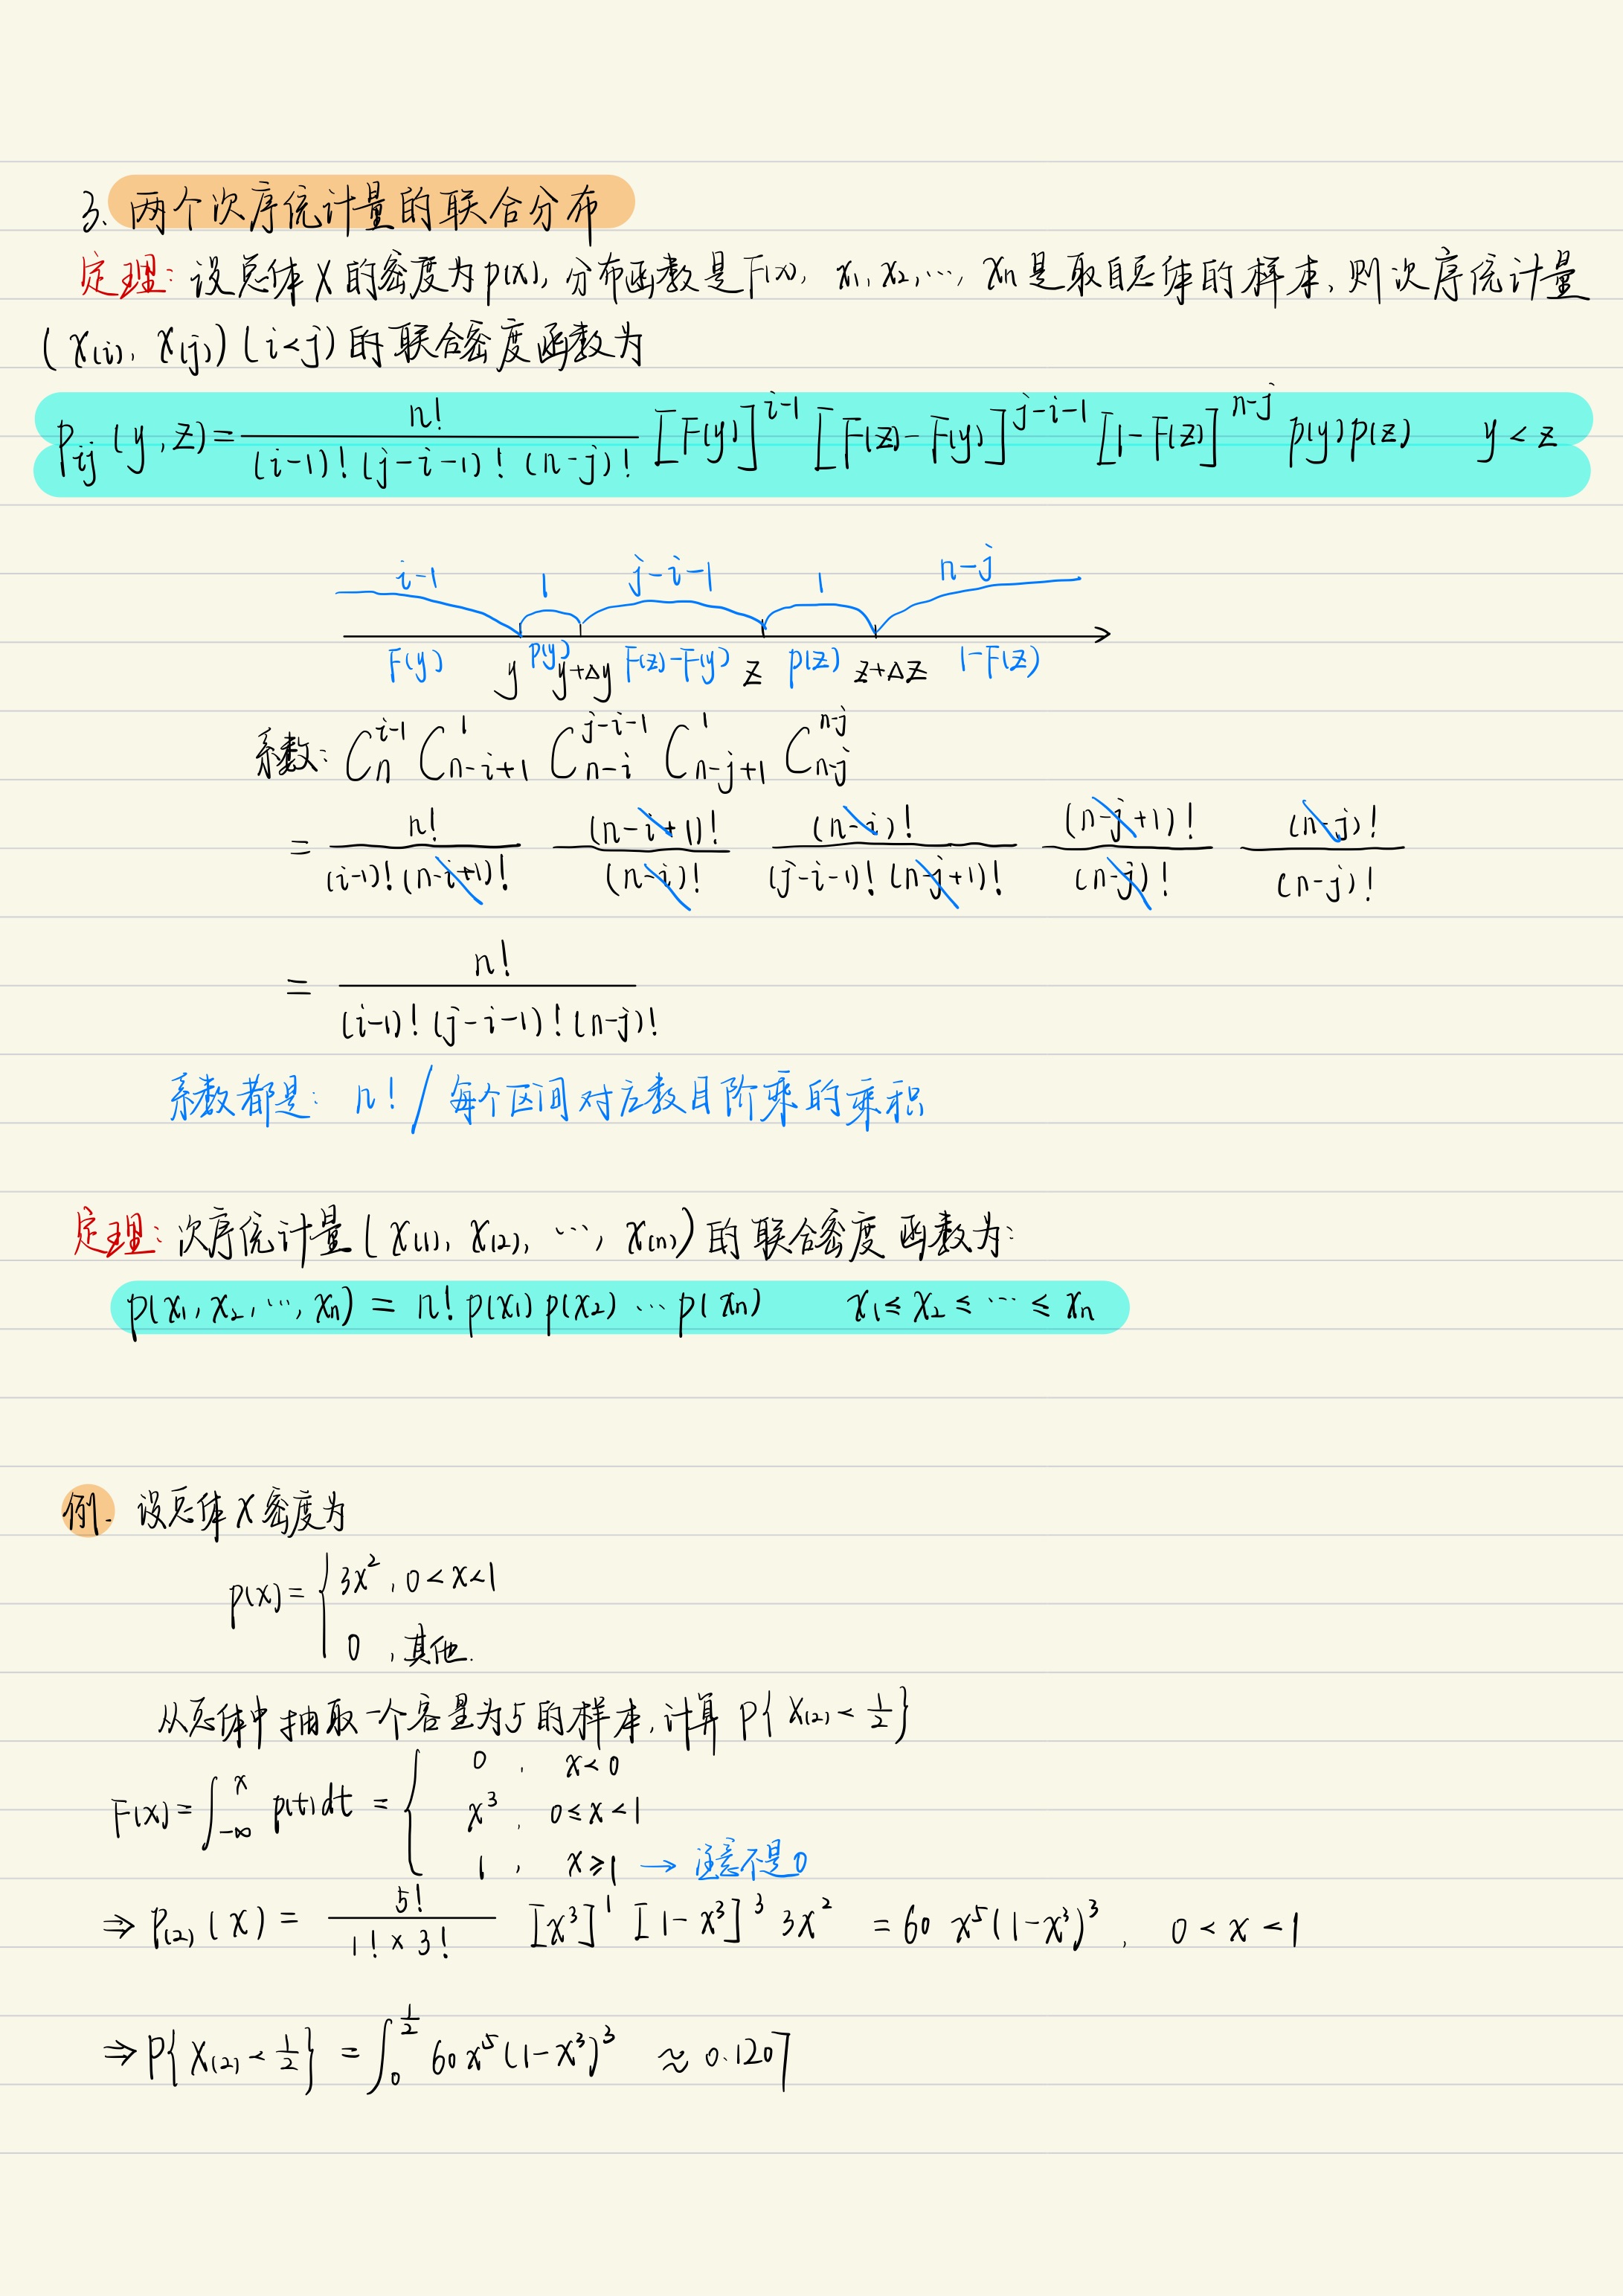 3、两个次序统计量的联合分布
定理: 设总体X的密度为p(x), 分布函数是F(x), x₁, x₂, ⋯, xₙ是取自总体的样本, 则次序统计量
(x₍ᵢ₎, x₍ⱼ₎) (i<j) 的联合密度函数为
p_{ij}(y,z)= \frac{n!}{(i-1)!(j-i-1)!(n-j)!} [F(y)]^{i-1} [F(z)-F(y)]^{j-i-1} [1-F(z)]^{n-j} p(y)p(z) y<z
i-1 1 j-i-1 1 n-j
F(y) y p(y) y+Δy F(z)-F(y) z p(z) z+Δz 1-F(z)
系数: C_{n}^{i-1} C_{n-i+1}^{1} C_{n-i}^{j-i-1} C_{n-j+1}^{1} C_{n-j}^{n-j}
= \frac{n!}{(i-1)!(n-i+1)!} \frac{(n-i+1)!}{(n-i)!} \frac{(n-i)!}{(j-i-1)!(n-j+1)!} \frac{(n-j+1)!}{(n-j)!} \frac{(n-j)!}{(n-j)!}
= \frac{n!}{(i-1)!(j-i-1)!(n-j)!}
系数都是: n! / 每个区间对应数目阶乘的乘积
定理: 次序统计量(x₍₁₎, x₍₂₎, ⋯, x₍ₙ₎)的联合密度函数为:
p(x₁, x₂, ⋯, xₙ) = n! p(x₁) p(x₂) ⋯ p(xₙ) x₁≤x₂≤⋯≤xₙ
例. 设总体X密度为
p(x)= { 3x², 0<x<1
0, 其他.
从总体中抽取一个容量为5的样本, 计算 P{X₍₂₎<\frac{1}{2}}
F(x)=∫_{-∞}^{x} p(t)dt = { 0, x<0
x³, 0≤x<1
1, x≥1 → 注意不是0
⇒ p₍₂₎(x) = \frac{5!}{1!×3!} [x³]^{1} [1-x³]^{3} 3x² = 60 x⁵(1-x³)³, 0<x<1
⇒ P{X₍₂₎<\frac{1}{2}} = ∫_{0}^{\frac{1}{2}} 60x⁵(1-x³)³ ≈ 0.1207